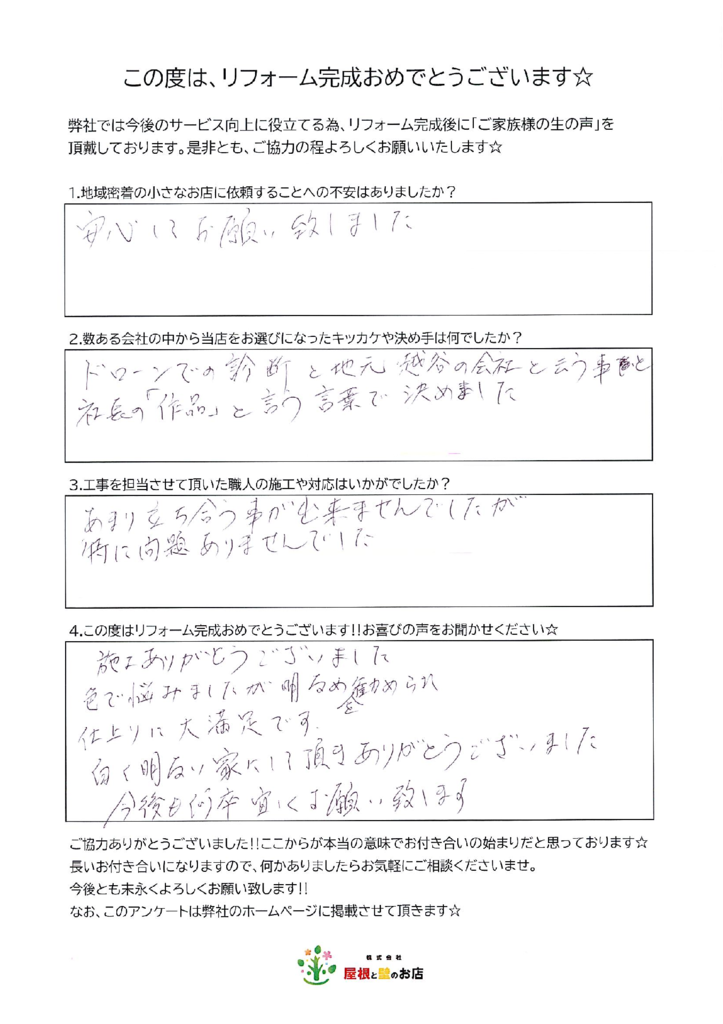 この度は、リフォーム完成おめでとうございます☆
弊社では今後のサービス向上に役立てる為、リフォーム完成後に「ご家族様の生の声」を
頂戴しております。是非とも、ご協力の程よろしくお願いいたします☆
1.地域密着の小さなお店に依頼することへの不安はありましたか？
安心してお願い致しました
2.数ある会社の中から当店をお選びになったキッカケや決め手は何でしたか？
ドローンでの診断と地元越谷の会社と云う事と
社長の「作品」と言う言葉で決めました
3.工事を担当させて頂いた職人の施工や対応はいかがでしたか？
あまり立ち合う事が出来ませんでしたが
特に問題ありませんでした
4.この度はリフォーム完成おめでとうございます!!お喜びの声をお聞かせください☆
施工ありがとうございました
色で悩みましたが明るめを勧められ
仕上りに大満足です.
白く明るい家にして頂きありがとうございました
今後も何卒宜しくお願い致します
ご協力ありがとうございました!!ここからが本当の意味でお付き合いの始まりだと思っております☆
長いお付き合いになりますので、何かありましたらお気軽にご相談くださいませ。
今後とも末永くよろしくお願い致します!!
なお、このアンケートは弊社のホームページに掲載させて頂きます☆
株式会社
屋根と壁のお店